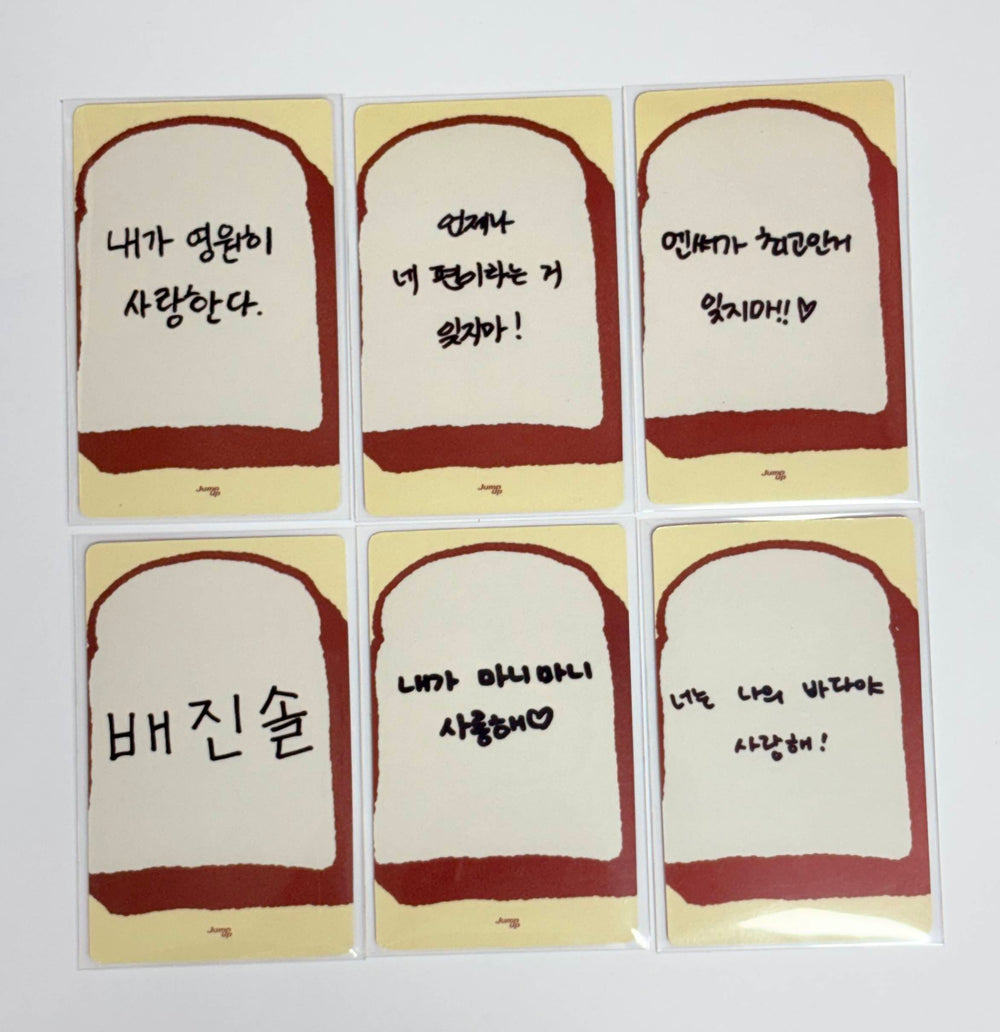 내가 영원히
사랑한다.
Jump
up
언제나
네 편이라는 거
잊지마!
Jump
up
엔써가 최고인거
잊지마!!♡
Jump
up
배진솔
Jump
up
내가 마니마니
사룽해♡
Jump
up
너는 나의 바다야
사랑해!